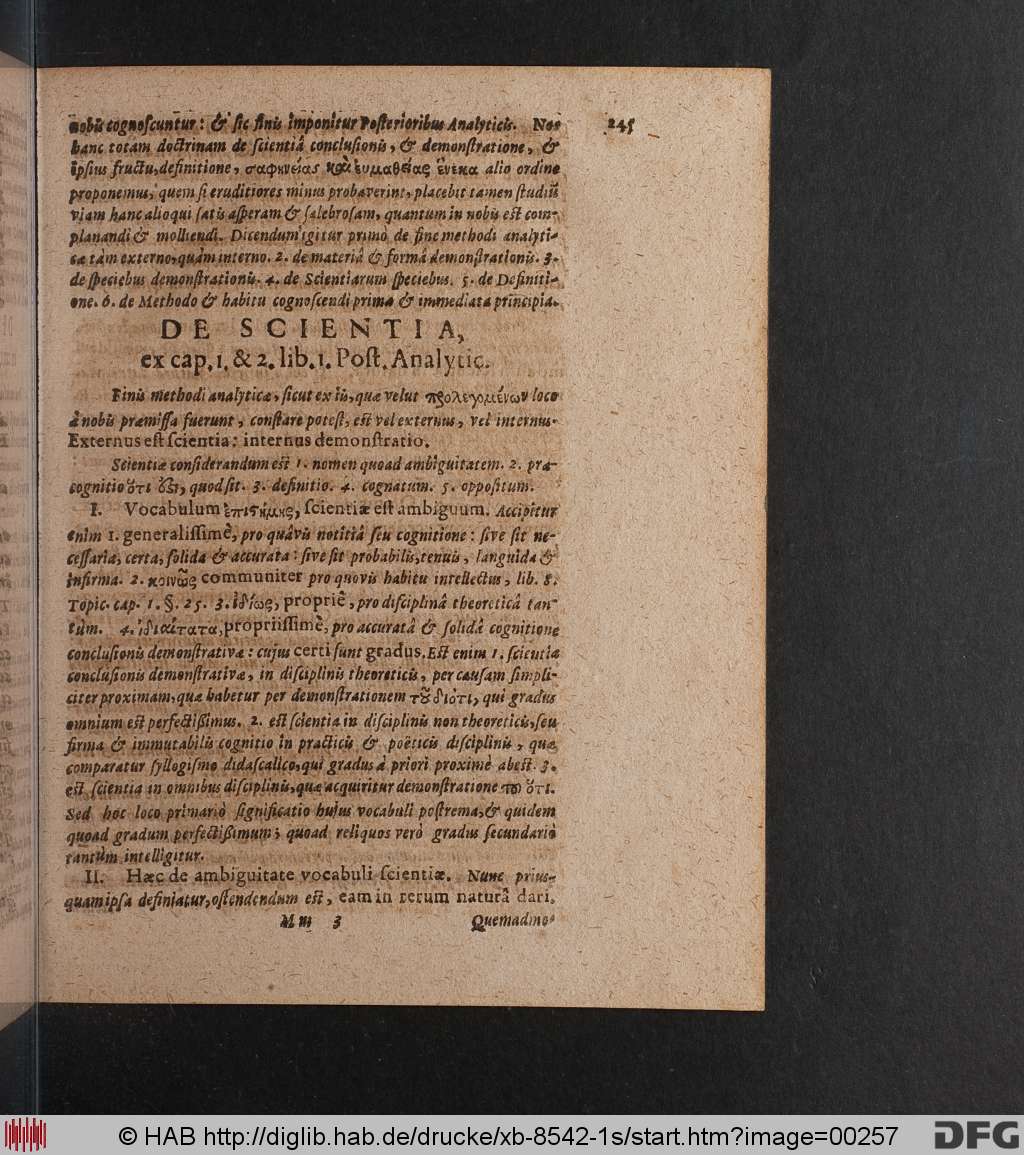 nobis cognoscuntur: & sic finis imponitur Posterioribus Analyticis. Nos
245
hanc totam doctrinam de scientiâ conclusionis, & demonstratione, &
ipsius fructu, definitione, σαφηνείας καὶ εὐμαθείας ἕνεκα alio ordine
proponemus, quem si eruditiores minus probaverint, placebit tamen studiū
viam hanc alioqui satis asperam & salebrosam, quantum in nobis est com-
planandi & molliendi. Dicendum igitur primò de fine methodi analyti-
cæ tàm externo, quàm interno. 2. de materiâ & formâ demonstrationis. 3.
de speciebus demonstrationis. 4. de Scientiarum speciebus. 5. de Definiti-
one. 6. de Methodo & habitu cognoscendi prima & immediata principia.
DE SCIENTIA,
ex cap. 1. & 2. lib. 1. Post. Analytic.
Finis methodi analyticæ, sicut ex iis, quæ velut προλεγομένων loco
à nobis præmissa fuerunt, constare potest, est vel externus, vel internus.
Externus est scientia: internus demonstratio.
Scientiæ considerandum est 1. nomen quoad ambiguitatem. 2. præ-
cognitio ὅτι ἐϛι, quod sit. 3. definitio. 4. cognatum. 5. oppositum.
I. Vocabulum ἐπιϛήμης, scientiæ est ambiguum. Accipitur
enim 1. generalissimè, pro quâvis notitiâ seu cognitione: sive sit ne-
cessaria, certa, solida & accurata: sive sit probabilis, tenuis, languida &
infirma. 2. κοινῶς communiter pro quovis habitu intellectus, lib. 8.
Topic. cap. 1. §. 25. 3. ἰδίως, propriè, pro disciplinâ theoreticâ tan-
tùm. 4. ἰδιαίτατα, propriissimè, pro accuratâ & solidâ cognitione
conclusionis demonstrativæ: cujus certi sunt gradus. Est enim 1. scientia
conclusionis demonstrativæ, in disciplinis theoreticis, per causam simpli-
citer proximam, quæ habetur per demonstrationem τοῦ διότι, qui gradus
omnium est perfectissimus. 2. est scientia in disciplinis non theoreticis, seu
firma & immutabilis cognitio in practicis & poëticis disciplinis, quæ
comparatur syllogismo didascalico, qui gradus à priori proximè abest. 3.
est scientia in omnibus disciplinis, quæ acquiritur demonstratione τοῦ ὅτι.
Sed hoc loco primariò significatio hujus vocabuli postrema, & quidem
quoad gradum perfectissimum; quoad reliquos verò gradus secundariò
tantùm intelligitur.
II. Hæc de ambiguitate vocabuli scientiæ. Nunc prius-
quam ipsa definiatur, ostendendum est, eam in rerum naturâ dari.
M m 3
Quemadmo-
© HAB http://diglib.hab.de/drucke/xb-8542-1s/start.htm?image=00257
DFG